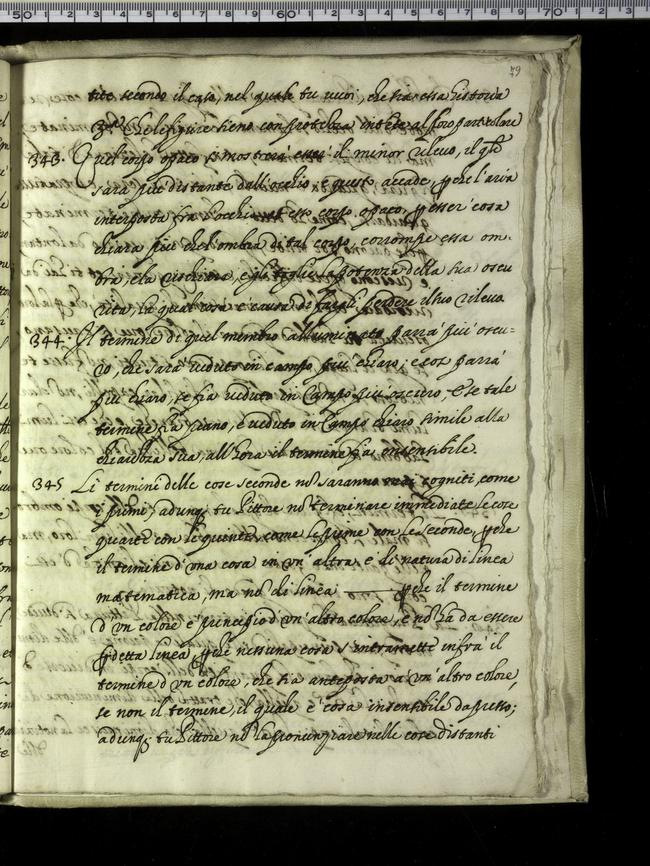 79
tite secondo il caso, nel quale tu vuoi, che sia essa historia
3ª Che le figure sieno con prontezza intente al loro particolare
343. Quel corpo opaco si mostrerà essere di minor rilevo, il qle
sarà più distante dall'occhio, e questo accade, perche l'aria
interposta fra l'occhio et esso corpo opaco, per esser cosa
chiara più che l'ombra di tal corpo, corrompe essa om-
bra, e la rischiara, e gli toglie la potenza della sua oscu
rità, la qual cosa è causa di farli perdere il suo rilevo.
344. Il termine di quel membro alluminato parrà più oscu=
ro, che sarà veduto in campo più chiaro, e così parrà
più chiaro, se fia veduto in Campo più oscuro, E se tale
termine fia piano, e veduto in Campo chiaro simile alla
chiarezza sua, all'hora il termine fia insensibile.
345 Li termini delle cose seconde nō saranno mai cogniti, come
i primi, adunq; tu Pittore nō terminare immediate le cose
quarte con le quinte, come le prime con le seconde, perche
il termine d'una cosa in un'altra, è di natura di linea
matematica, ma nō di linea ——— perche il termine
d'vn colore è principio d'vn'altro colore, e nō ha da essere
però detta linea, perche nessuna cosa s'intramette infrà il
termine d'vn colore, che sia anteposto a vn'altro colore,
se non il termine, il quale è cosa insensibile da presso;
adunq; tu Pittore nō la pronunziare nelle cose distanti